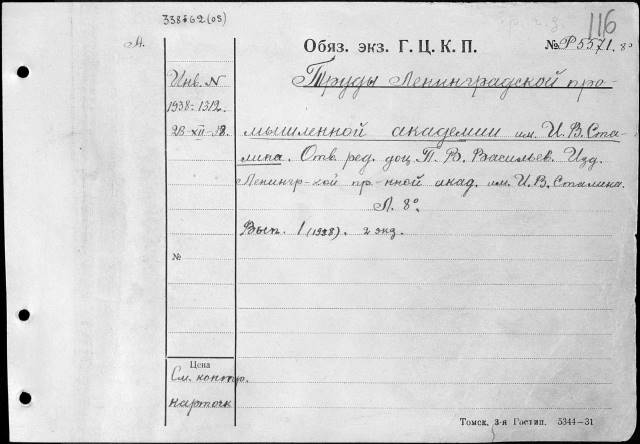 338+62(05)
116
А.
Обяз. экз. Г. Ц. К. П.
№ Р5571. 8°
Инв. N
1938:1312
28-XII-38.
Труды Ленинградской про-
мышленной академии им. И. В. Ста-
лина. Отв. ред. доц. П. В. Васильев. Изд.
Ленингр-кой пр-нной акад. им. И. В. Сталина.
Л. 8°
Вып. 1 (1938). 2 экз.
№
Цена
См. контр.
карточк
Томск, 3-я Гостип. 5344—31